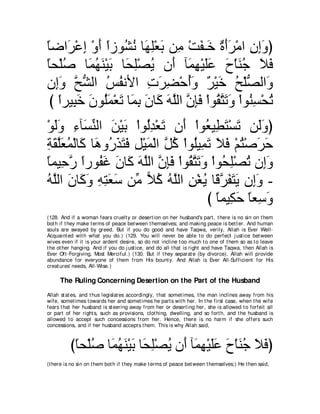 وَإِنِ امْرَأَةٌ خَـفَتْ مِن بَعْلِهَا نُشُوزاً أَوْ إِعْرَاضاً
فَلاَ جُنَاْحَ عَلَيْهِمَآ أَن يُصْلِحَا بَيْنَهُمَا صُلْحاً
وَالصُّلْحُ خَيْرٌ وَأُحْضِرَتِ الأنفُسُ الشُّحَّ وَإِن
تُحْسِنُواْ وَتَتَّقُواْ فَإِنَّ اللَّهَ كَانَ بِمَا تَعْمَلُونَ خَبِيراً )
وَلَن تَسْتَطِيعُواْ أَن تَعْدِلُواْ بَيْنَ النِّسَآءِ وَلَوْ
حَرَصْتُمْ فَلاَ تَمِيلُواْ كُلَّ الْمَيْلِ فَتَذَرُوهَا كَالْمُعَلَّقَةِ
وَإِن تُصْلِحُواْ وَتَتَّقُواْ فَإِنَّ اللَّهَ كَانَ غَفُوراً رَّحِيماً
- وَإِن يَتَفَرَّقَا يُغْنِ اللَّهُ كُلاًّ مِّن سَعَتِهِ وَكَانَ اللَّهُ
وَسِعاً حَكِيماً )
(128. And if a woman fears cruelty or desertion on her husband's part, there is no sin on them
both if they make terms of peace between themselves; and making peace is better. And human
souls are swayed by greed. But if you do good and have Taqwa, verily, Allah is Ever Well-
Acquainted with what you do.) (129. You will never be able to do perfect justice between
wives even if it is your ardent desire, so do not incline too much to one of them so as to leave
the other hanging. And if you do justice, and do all that is right and have Taqwa, then Allah is
Ever Oft-Forgiving, Most Merciful.) (130. But if they separate (by divorce), Allah will provide
abundance for everyone of them from His bounty. And Allah is Ever All-Sufficient for His
creatures' needs, All-Wise.)
The Ruling Concerning Desertion on the Part of the Husband
Allah states, and thus legislates accordingly, that sometimes, the man inclines away from his
wife, sometimes towards her and sometimes he parts with her. In the first case, when the wife
fears that her husband is steering away from her or deserting her, she is allowed to forfeit all
or part of her rights, such as provisions, clothing, dwelling, and so forth, and the husband is
allowed to accept such concessions from her. Hence, there is no harm if she offers such
concessions, and if her husband accepts them. This is why Allah said,
(فَلاَ جُنَاْحَ عَلَيْهِمَآ أَن يُصْلِحَا بَيْنَهُمَا صُلْحاً)
(there is no sin on them both if they make terms of peace between themselves;) He then said,